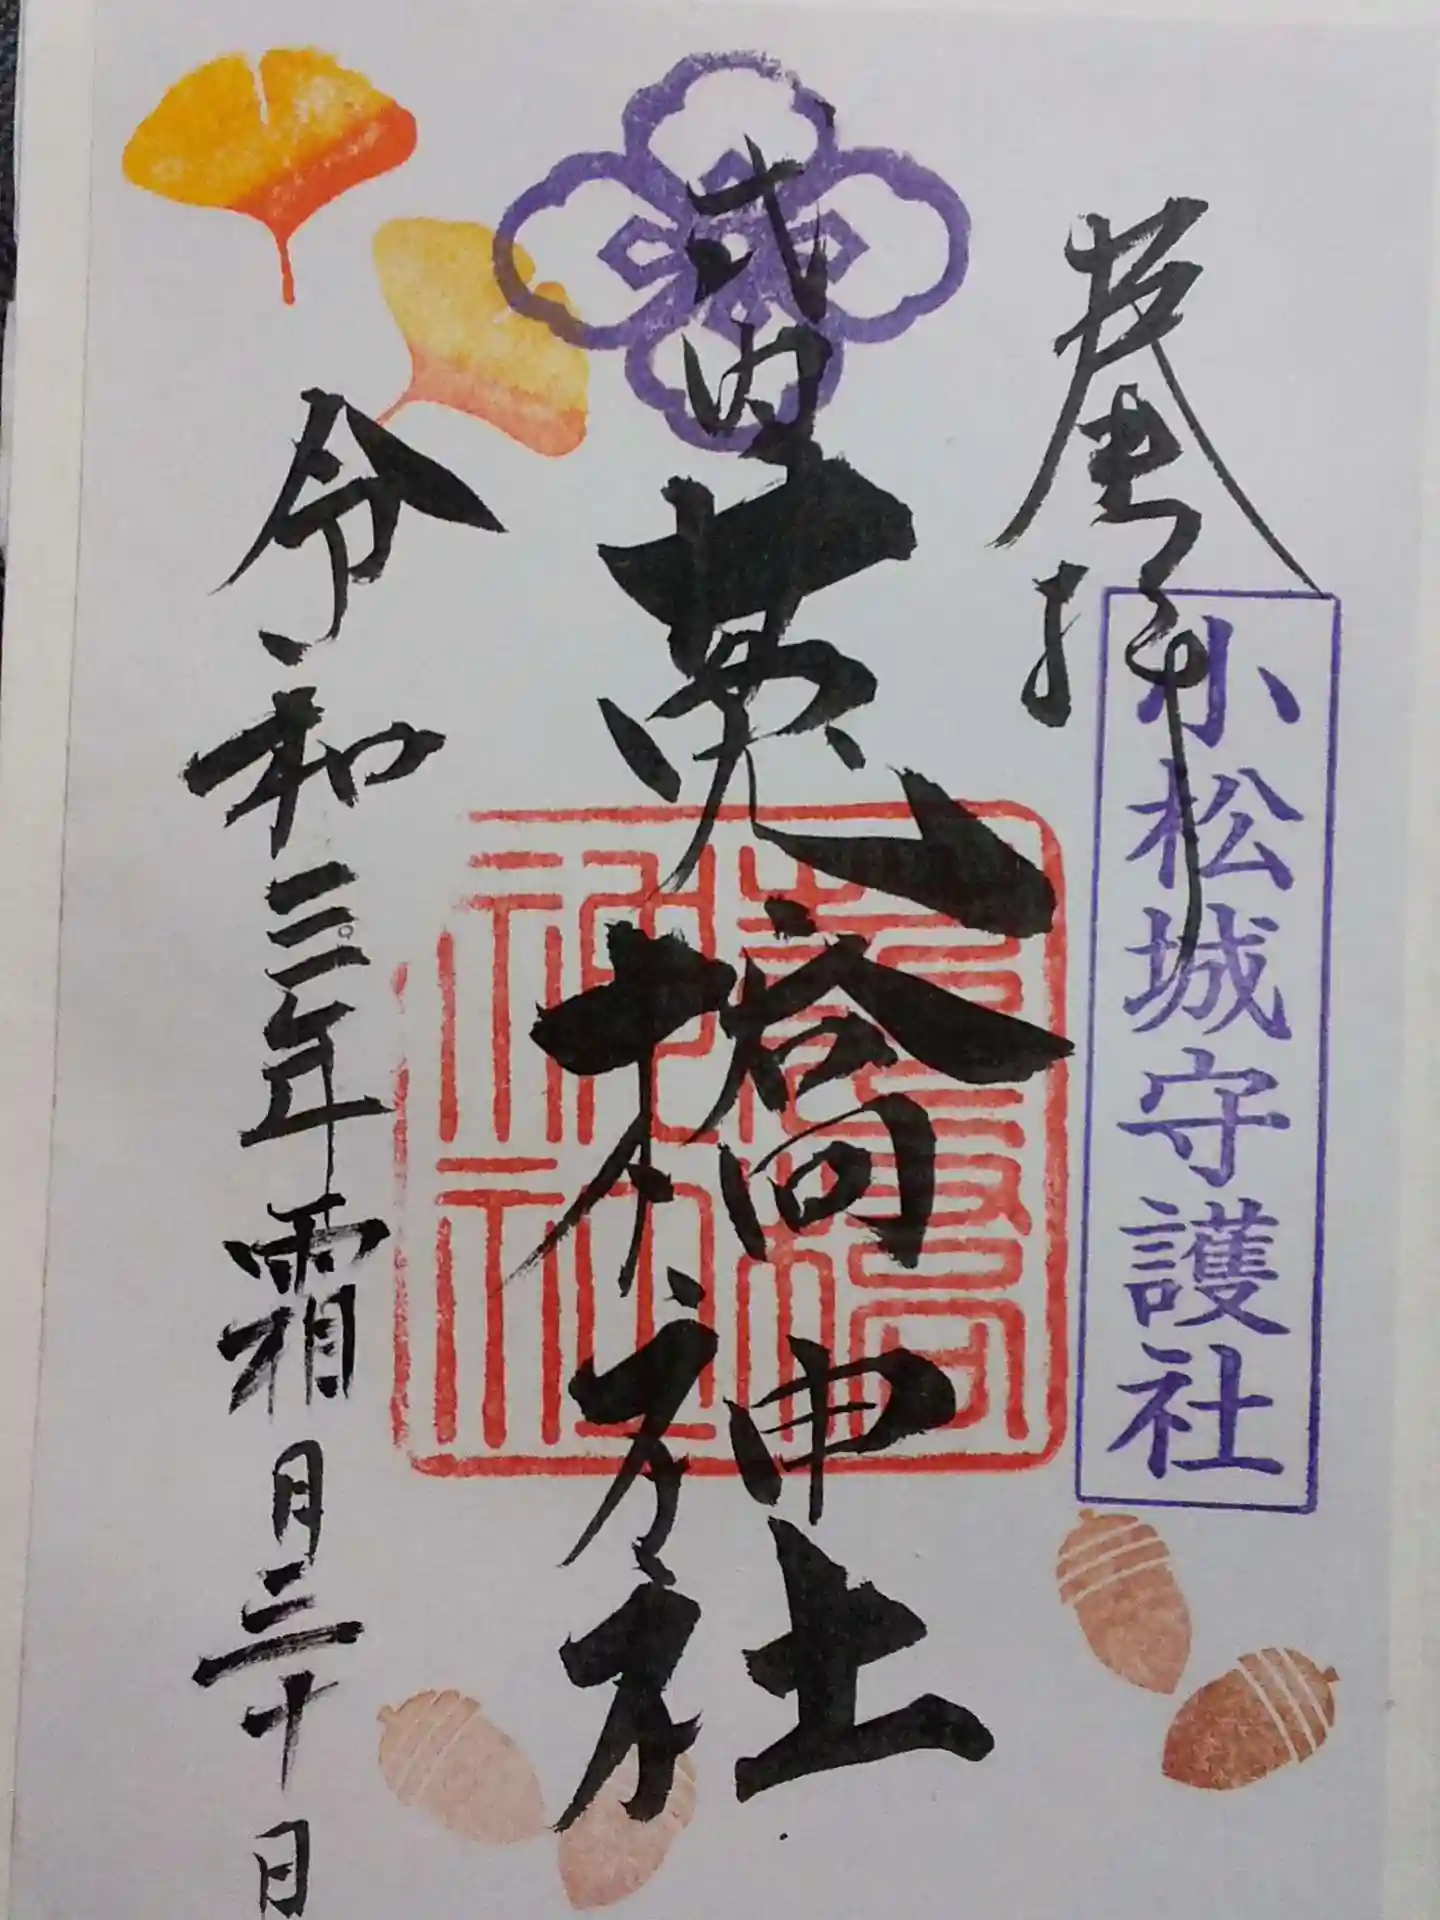 奉拝
小松城守護社
式内 莵橋神社
莵橋神社
令和三年霜月三十日